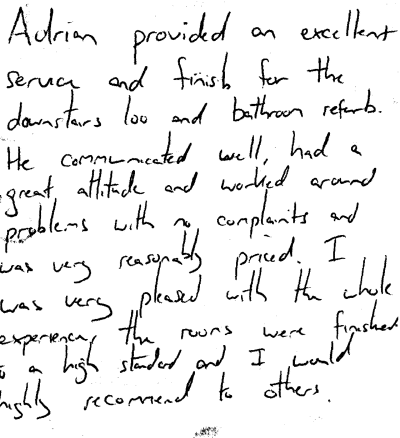 Adrian provided an excellent
service and finish for the
downstairs loo and bathroom refurb.
He communicated well, had a
great attitude and worked around
problems with no complaints and
was very reasonably priced. I
was very pleased with the whole
experience, the rooms were finished
to a high standard and I would
highly recommend to others.